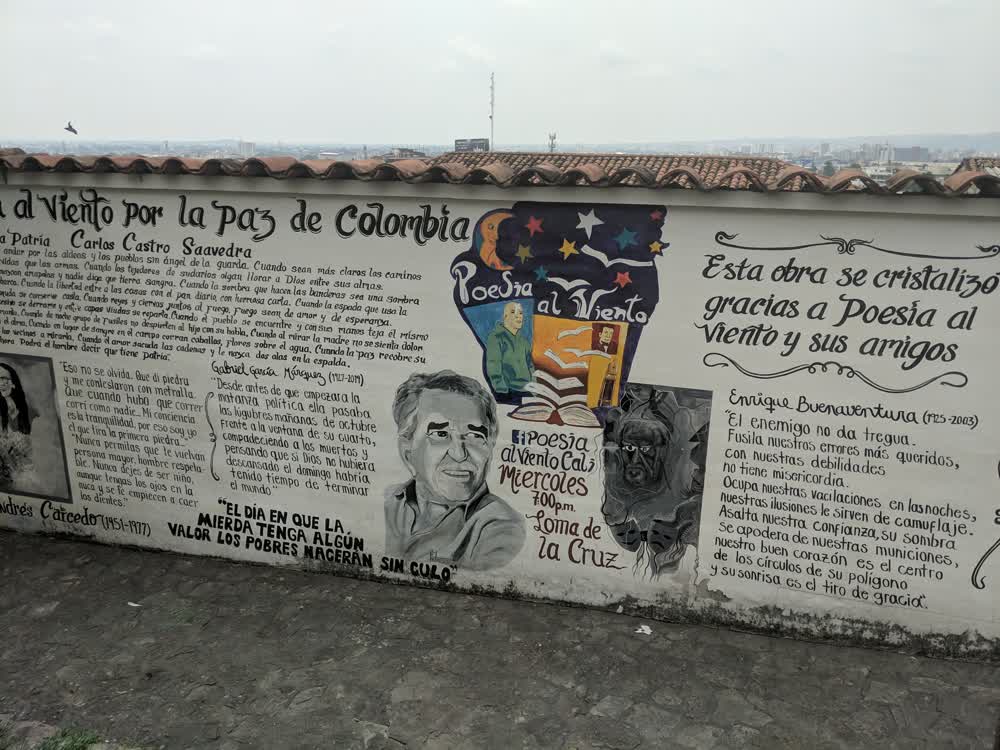 al Viento por la paz de Colombia
a Patria Carlos Castro Saavedra
andar por las aldeas y los pueblos sin ángel de la guarda. Cuando sean más claros los caminos
vidas que las armas. Cuando los tejedores de sudarios oigan llorar a Dios entre sus almas.
Cuando la sombra que hacen las banderas sea una sombra
Cuando la libertad entre a las casas con el pan diario, con hermosa carta. Cuando la espada que usa la
Cuando reyes y ciervos juntos al fuego, fuego sean de amor y de esperanza.
Cuando el pueblo se encuentre y con sus manos teja el mismo
Cuando de noche grupos de fusiles no despierten al hijo con su habla. Cuando al mirar la madre no se sienta dolor
Cuando en lugar de sangre en el campo corran caballos, flores sobre el agua. Cuando la paz recobre su
Cuando el amor sacuda las cadenas y le nazca dos alas en la espalda.
Podrá el hombre decir que tiene patria.
"Eso no se olvida. Que di piedra
y me contestaron con metralla.
Que cuando hubo que correr
corrí como nadie... Mi conciencia
es la tranquilidad, por eso soy yo
el que tira la primera piedra..."
"Nunca permitas que te vuelvan
persona mayor, hombre respeta-
ble. Nunca dejes de ser niño,
aunque tengas los ojos en la
nuca y se te empiecen a caer
los dientes."
ndrés Caicedo (1951-1977)
Gabriel García Márquez (1927-2014)
"Desde antes de que empezara la
matanza política ella pasaba
las lúgubres mañanas de octubre
frente a la ventana de su cuarto,
compadeciendo a los muertos y
pensando que si Dios no hubiera
descansado el domingo habría
tenido tiempo de terminar
el mundo"
"EL DÍA EN QUE LA
MIERDA TENGA ALGÚN
VALOR LOS POBRES NACERÁN SIN CULO"
Poesía
al Viento
f poesía
al Viento Cali
Miércoles
7:00 p.m.
Loma de
la Cruz
Esta obra se cristalizó
gracias a Poesía al
Viento y sus amigos
Enrique Buenaventura (1925-2003)
"El enemigo no da tregua.
Fusila nuestros errores más queridos,
con nuestras debilidades
no tiene misericordia.
Ocupa nuestras vacilaciones en las noches,
nuestras ilusiones le sirven de camuflaje.
Asalta nuestra confianza, su sombra
se apodera de nuestras municiones,
nuestro buen corazón es el centro
de los círculos de su polígono
y su sonrisa es el tiro de gracia".